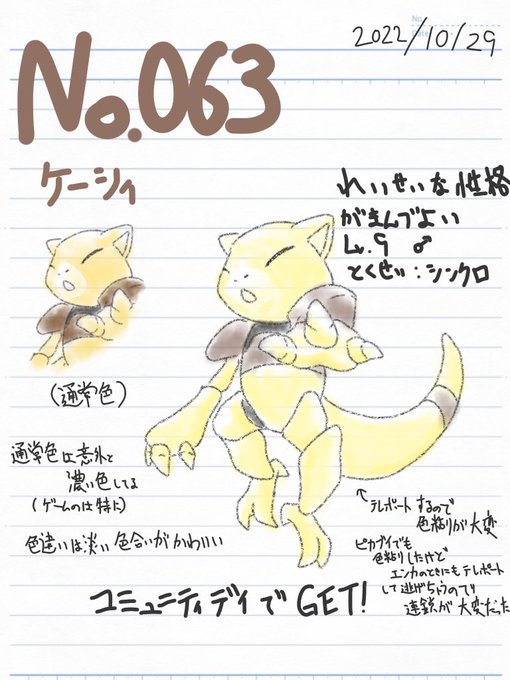 No.063
2022/10/29
ケーシィ
れいせいな性格
がまんづよい
Lv.9 ♂
とくせい:シンクロ
(通常色)
通常色は意外と
濃い色してる
(ゲームのは特に)
色違いは淡い色合いがかわいい
テレポートするので
色粘りが大変
ピカブイでも
色粘りしたけど
エンカのときにもテレポート
して逃げちゃうので
連鎖が大変だった
コミュニティデイでGET!